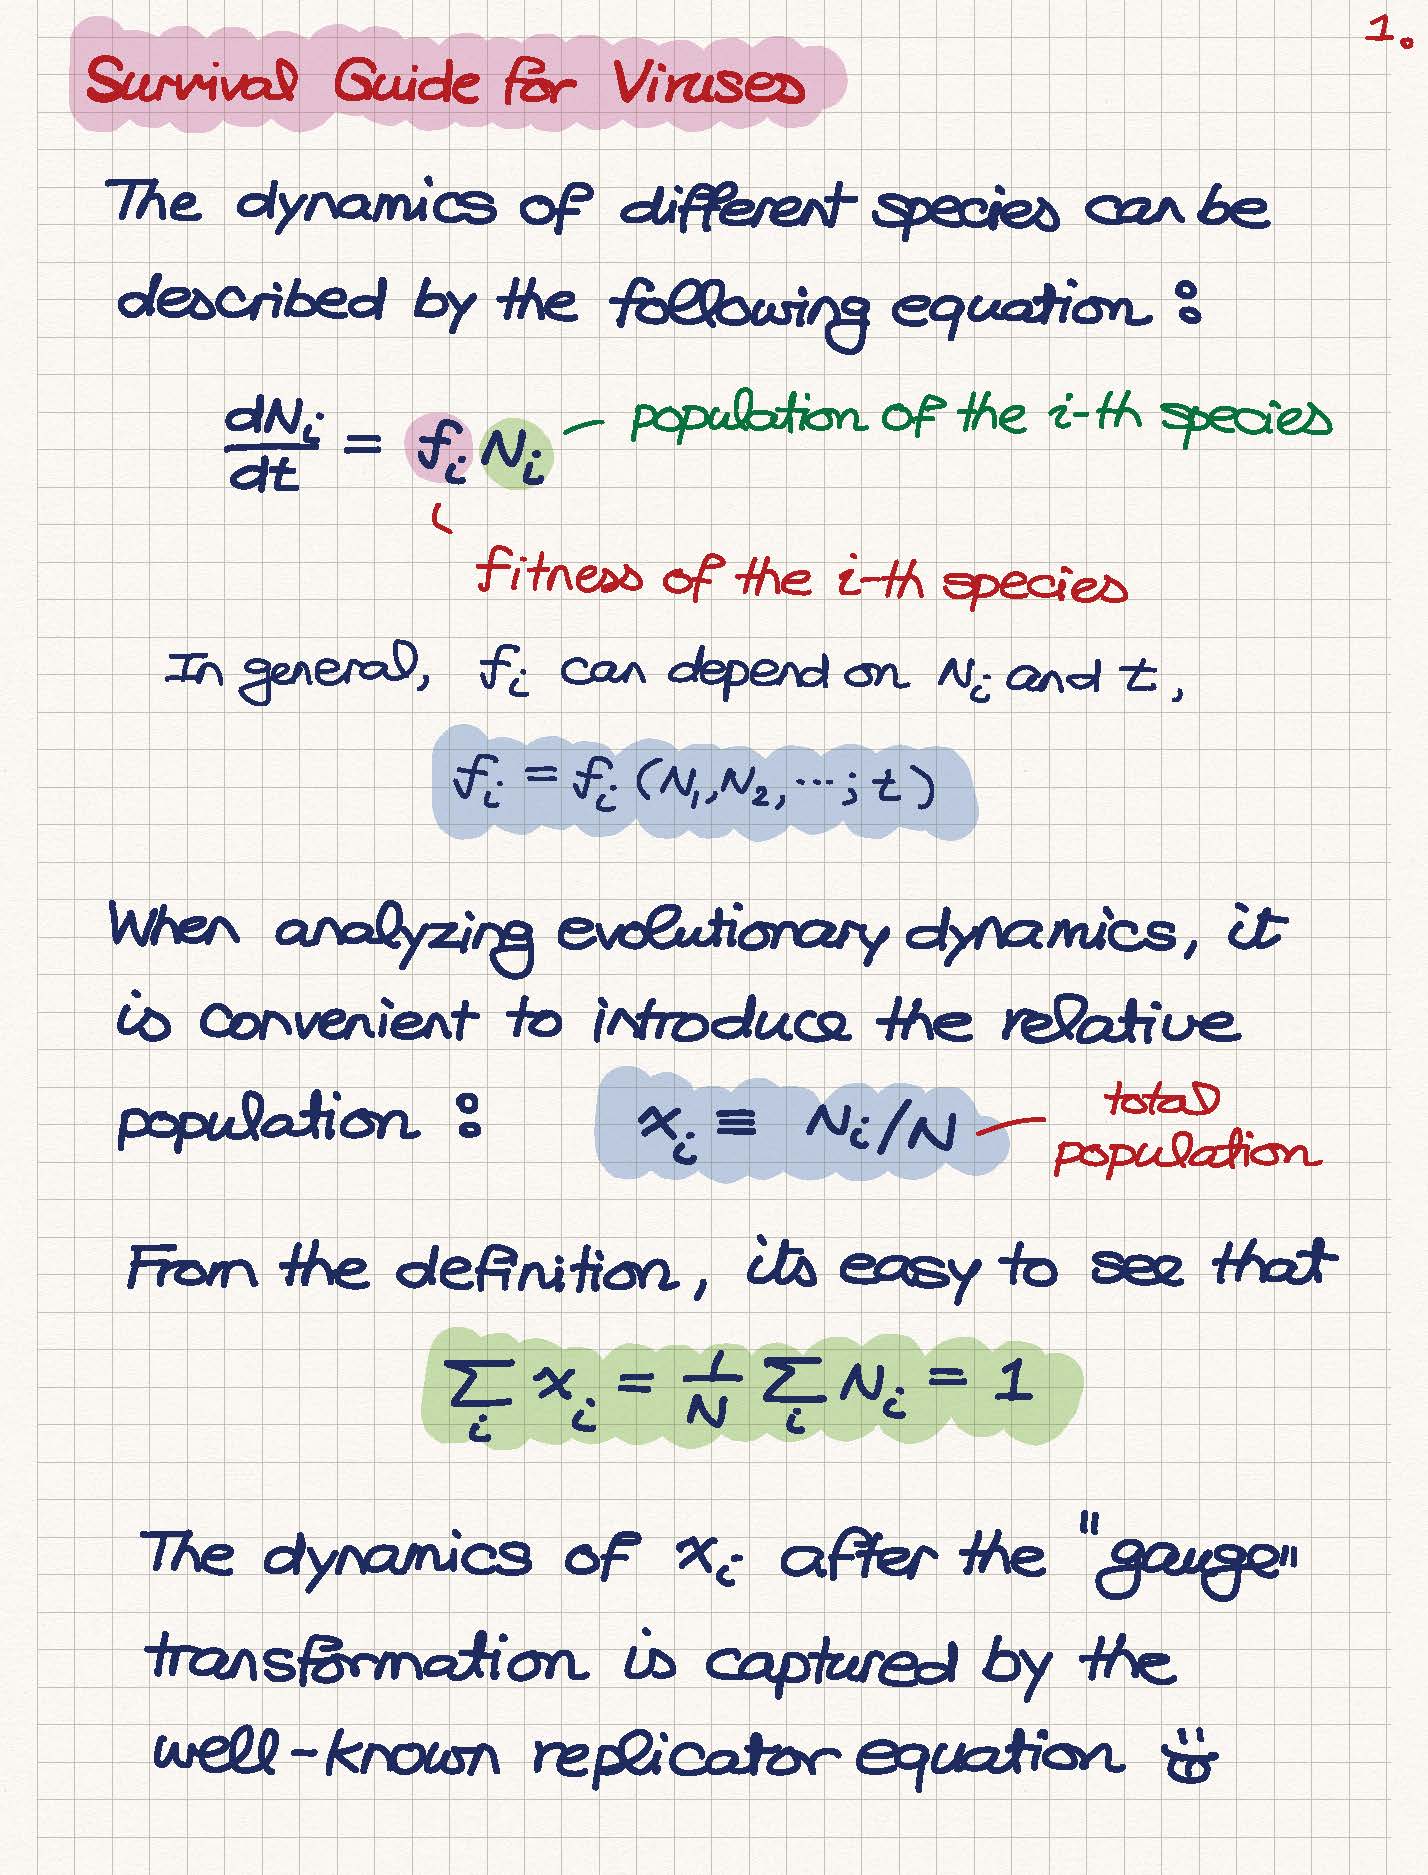 1.
Survival Guide for Viruses
The dynamics of different species can be
described by the following equation :
dNᵢ/dt = fᵢ Nᵢ — population of the i-th species
fitness of the i-th species
In general, fᵢ can depend on Nᵢ and t,
fᵢ = fᵢ (N₁, N₂, ⋯ ; t)
When analyzing evolutionary dynamics, it
is convenient to introduce the relative
population : xᵢ ≡ Nᵢ/N — total population
From the definition, its easy to see that
∑ᵢ xᵢ = 1/N ∑ᵢ Nᵢ = 1
The dynamics of xᵢ after the "gauge"
transformation is captured by the
well-known replicator equation